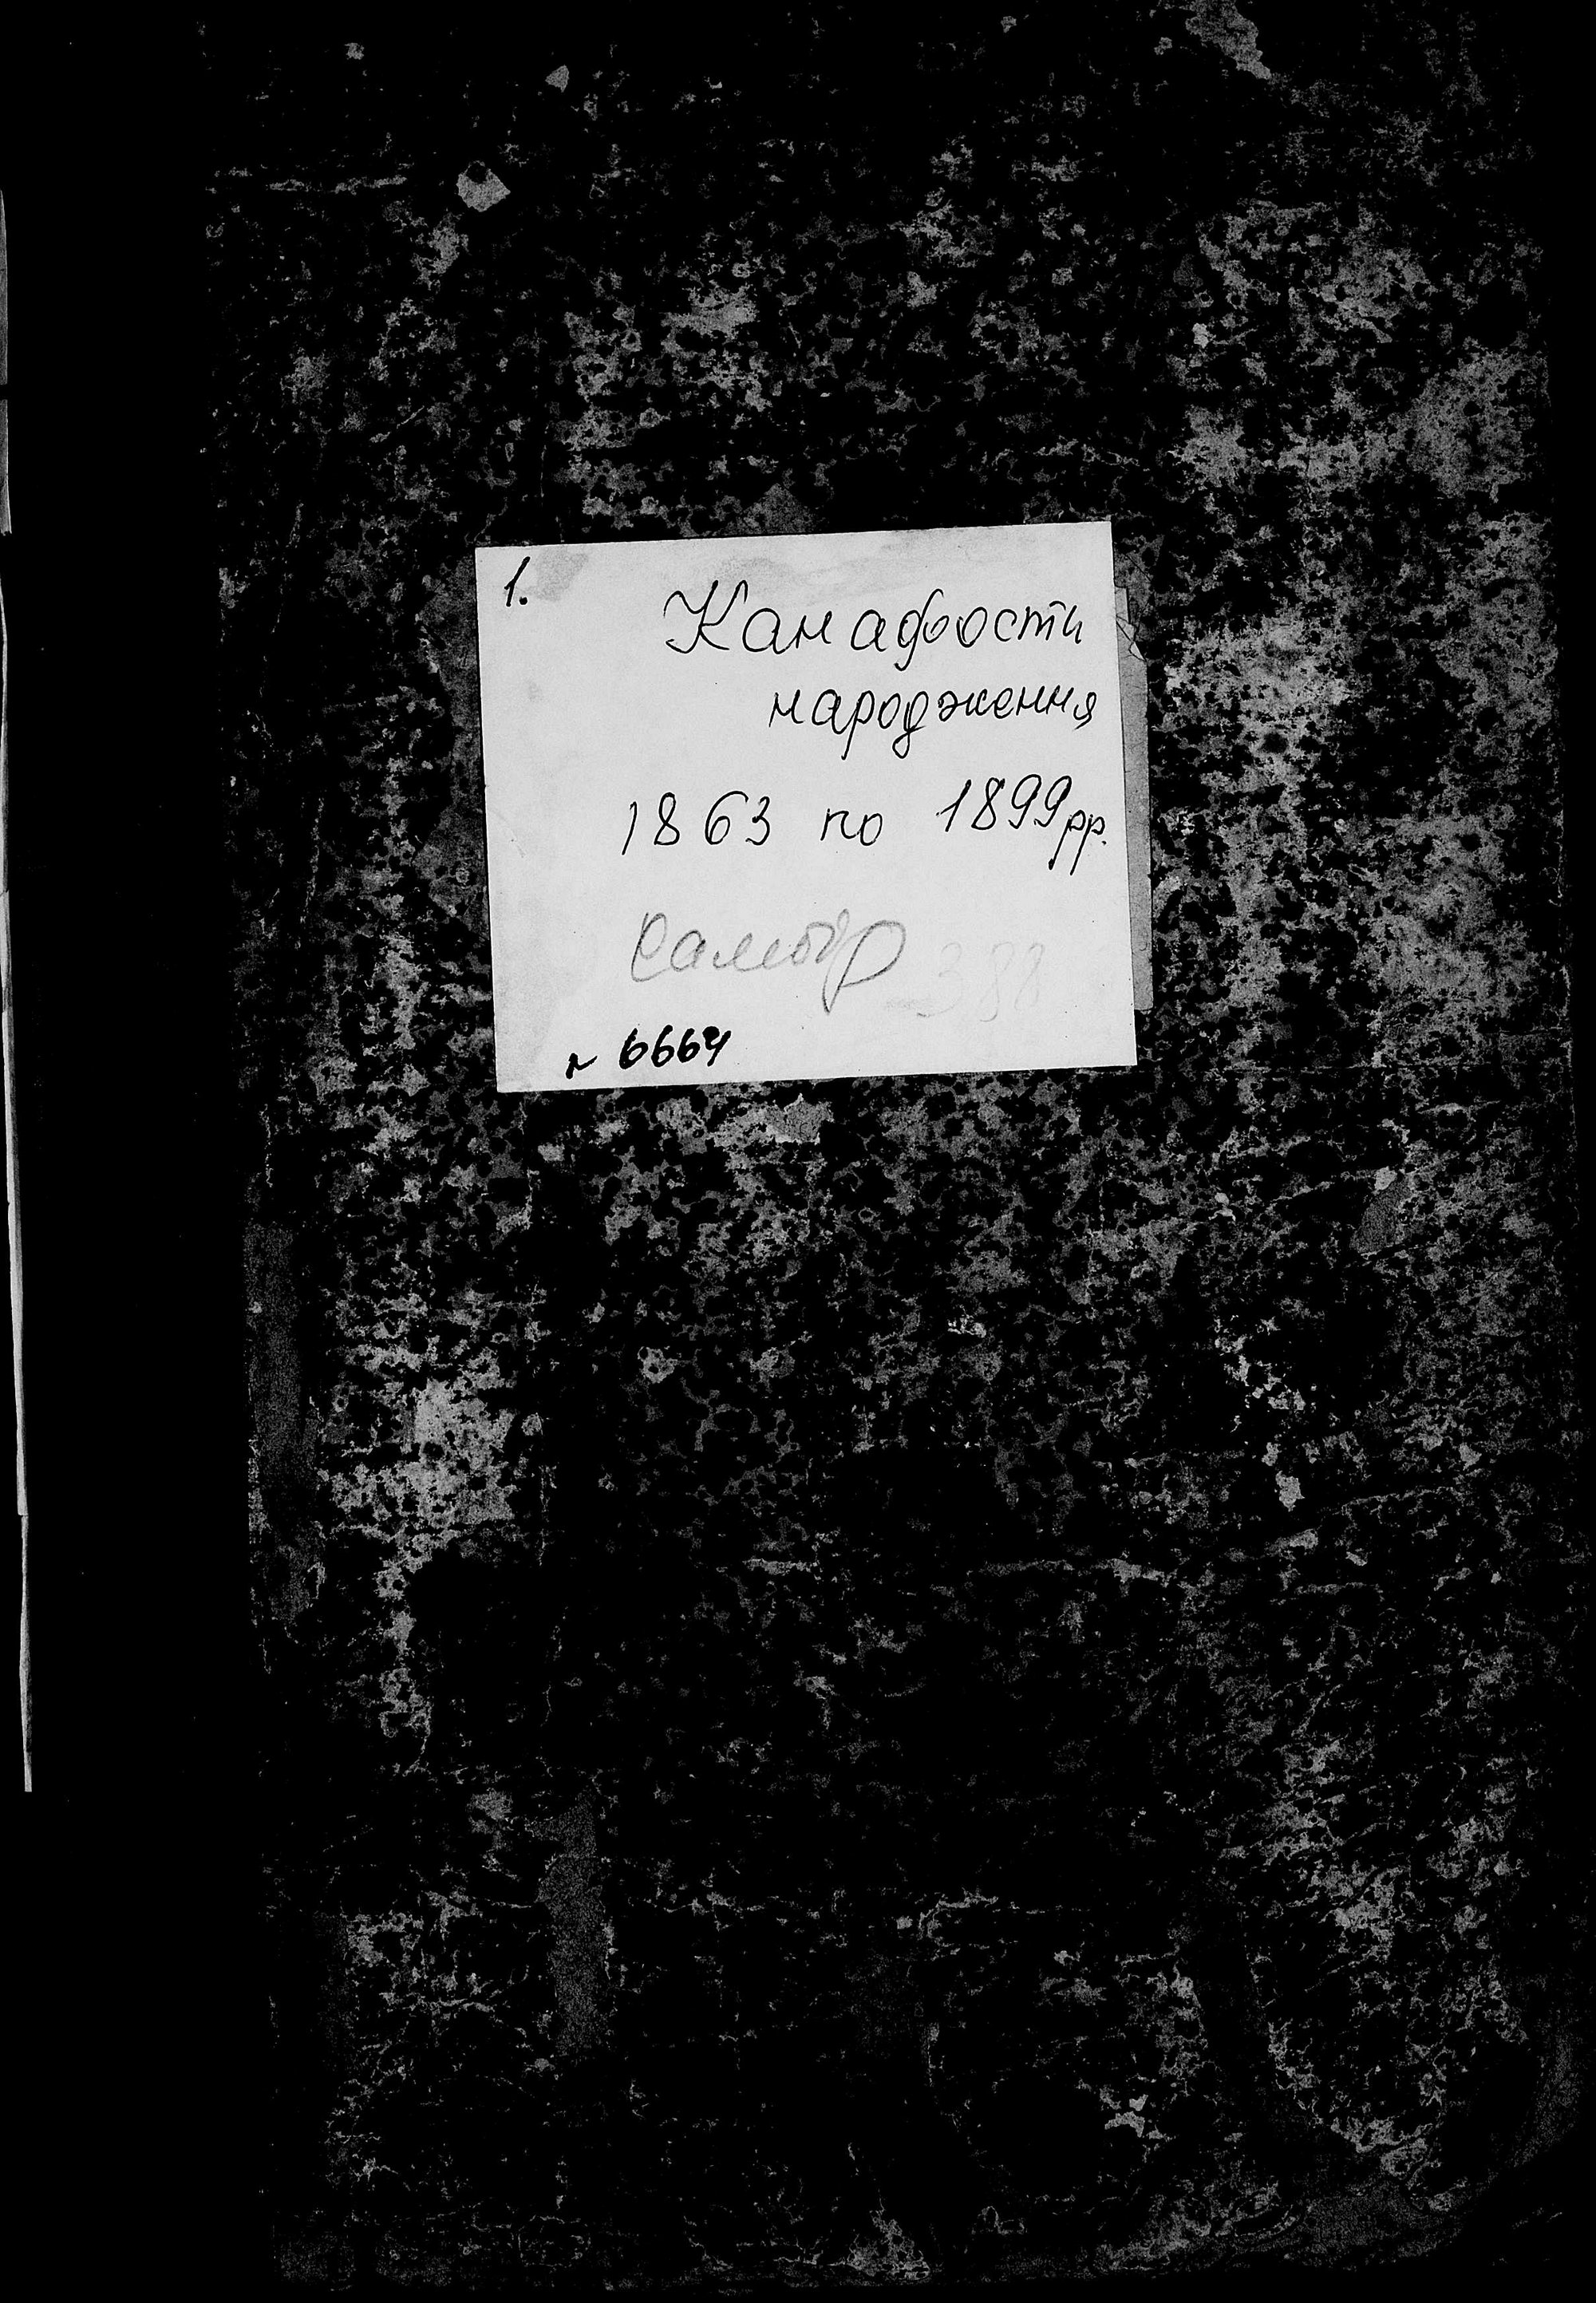 1.
Канафости
народження
1863 по 1899 рр.
Самбір 388
№ 6664